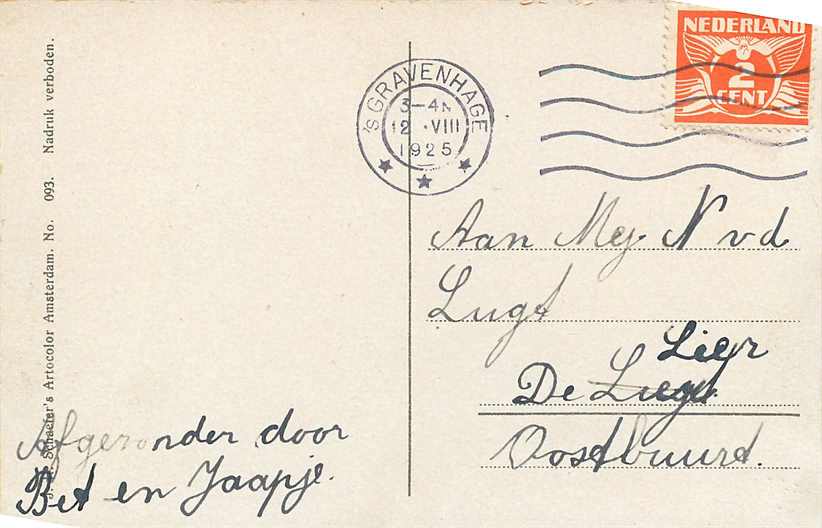 J. C. Schaefer's Artocolor Amsterdam. No. 093. Nadruk verboden.
'S GRAVENHAGE
3-4N
12 .VIII
1925
NEDERLAND
2
CENT
Aan Mej. N v d
Lugt
Lier
De
Oostbuurt.
Afgezonder door
Bet en Jaapje.